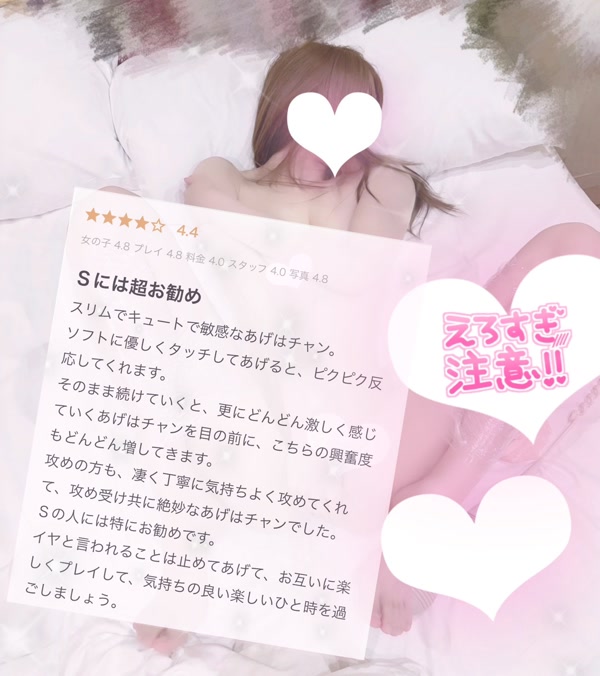 ★★★★☆ 4.4
女の子 4.8 プレイ 4.8 料金 4.0 スタッフ 4.0 写真 4.8
Sには超お勧め
スリムでキュートで敏感なあげはチャン。
ソフトに優しくタッチしてあげると、ピクピク反
応してくれます。
そのまま続けていくと、更にどんどん激しく感じ
ていくあげはチャンを目の前に、こちらの興奮度
もどんどん増してきます。
攻めの方も、凄く丁寧に気持ちよく攻めてくれ
て、攻め受け共に絶妙なあげはチャンでした。
Sの人には特にお勧めです。
イヤと言われることは止めてあげて、お互いに楽
しくプレイして、気持ちの良い楽しいひと時を過
ごしましょう。
えろすぎ
注意!!